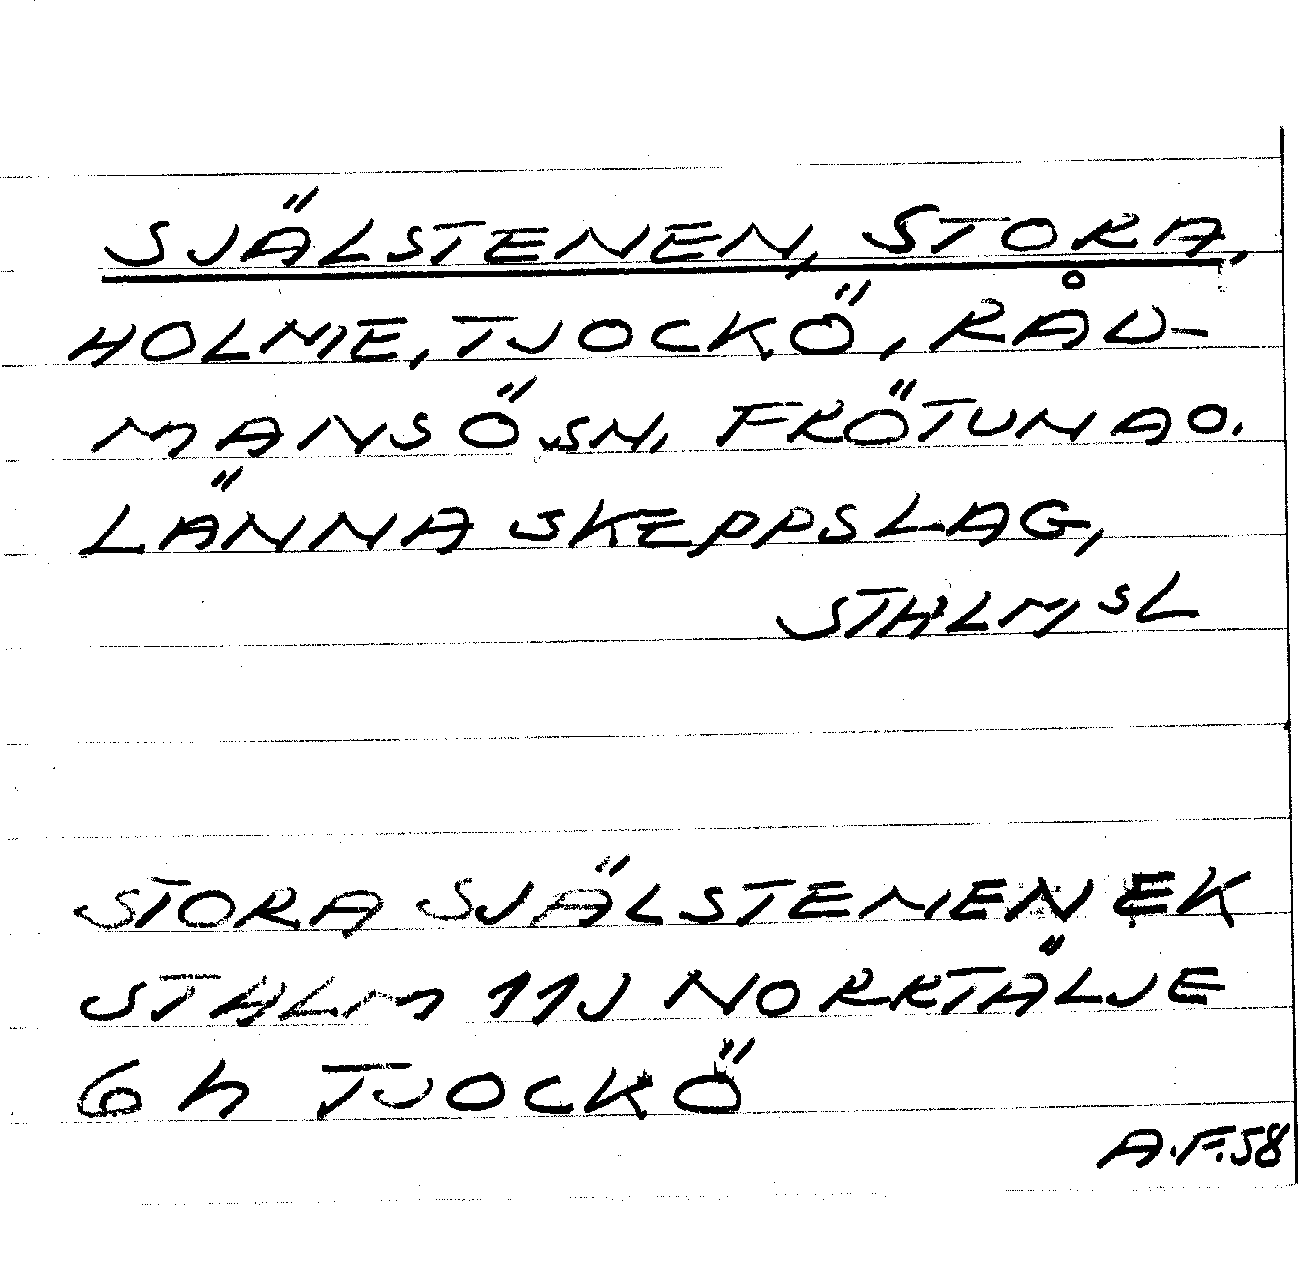 SJÄLSTENEN, STORA,
HOLME, TJOCKÖ, RÅD-
MANSÖ SN, FRÖTUNA O.
LÄNNA SKEPPSLAG,
STHLMS L
STORA SJÄLSTENEN EK
STHLM 11J NORRTÄLJE
6h TJOCKÖ
A.F.58